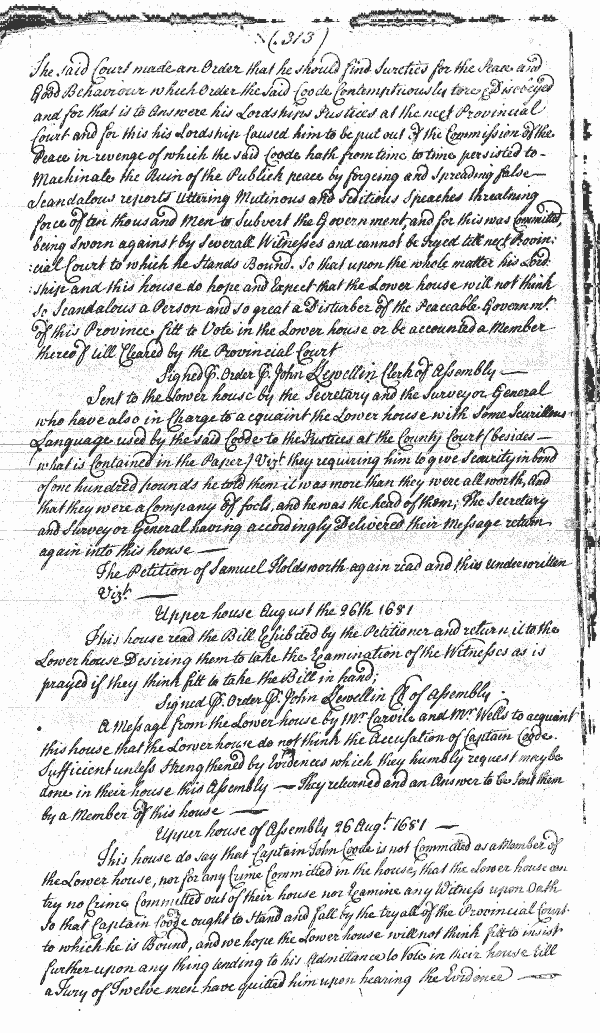 (.313)
The said Court made an Order that he should find Sureties for the Peace and
Good Behaviour which Order the said Coode Contemptiously Disobeyed
and for that is to Answere his Lordships Justices at the next Provincial
Court and for this his Lordship Caused him to be put out of the Commission of the
Peace in revenge of which the said Coode hath from time to time persisted to
Machinate the Ruin of the Publick peace by forgeing and Spreading false
Scandalous reports Uttering Mutinous and Seditious Speaches threatning
force of ten thousand Men to Subvert the Government and for this was Committed,
being Sworn against by Severall Witnesses and cannot be tryed till next Provin:
:cial Court to which he Stands Bound. So that upon the whole matter his Lord
:ship and this house do hope and Expect that the Lower house will not think
So Scandalous a Person and so great a Disturber of the Peaceable Governmt.
of this Province fitt to Vote in the Lower house or be accounted a Member
thereof till Cleared by the Provincial Court
Signed P. Order P. John Llewellin Clerk of Assembly —
Sent to the Lower house by the Secretary and the Surveyor General
who have also in Charge to acquaint the Lower house with Some Scurillous
Language used by the said Coode to the Justices at the County Court (besides —
what is Contained in the Paper) Vizt they requiring him to give Security in bond
of one hundred pounds he told them it was more than they were all worth, And
that they were a Company of fools, and he was the head of them; The Secretary
and Surveyor General having accordingly Delivered their Message return
again into this house —
The Petition of Samuel Holdsworth again read and this underwritten
Vizt. —
Upper house August the 26th 1681
This house read the Bill Exhibited by the Petitioner and return it to the
Lower house Desiring them to take the Examination of the Witnesses as is
prayed if they think fitt to take the Bill in hand;
Signed P. Order P. John Llewellin Cl of Assembly.
A Message from the Lower house by Mr Carvile and Mr. Wells to acquaint
this house that the Lower house do not think the Accusation of Captain Coode
Sufficient unless Strengthened by Evidences which they humbly request may be
done in their house this Assembly — They returned and an Answer to be Sent them
by a Member of this house —
Upper house of Assembly 26 Augt. 1681 —
This house do say that Captain John Coode is not Committed as a Member of
the Lower house, nor for any Crime Committed in the house, that the Lower house can
try no Crime Committed out of their house nor Examine any Witness upon Oath
So that Captain Coode ought to Stand and fall by the tryall of the Provincial Court
to which he is Bound, and we hope the Lower house will not think fitt to insist
further upon any thing tending to his Admittance to Vote in their house till
a Jury of Twelve men have quitted him upon hearing the Evidence —